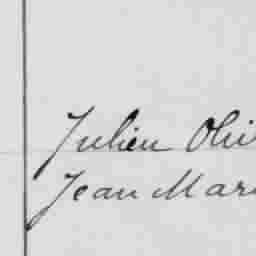 Julien Oli
Jean Mar